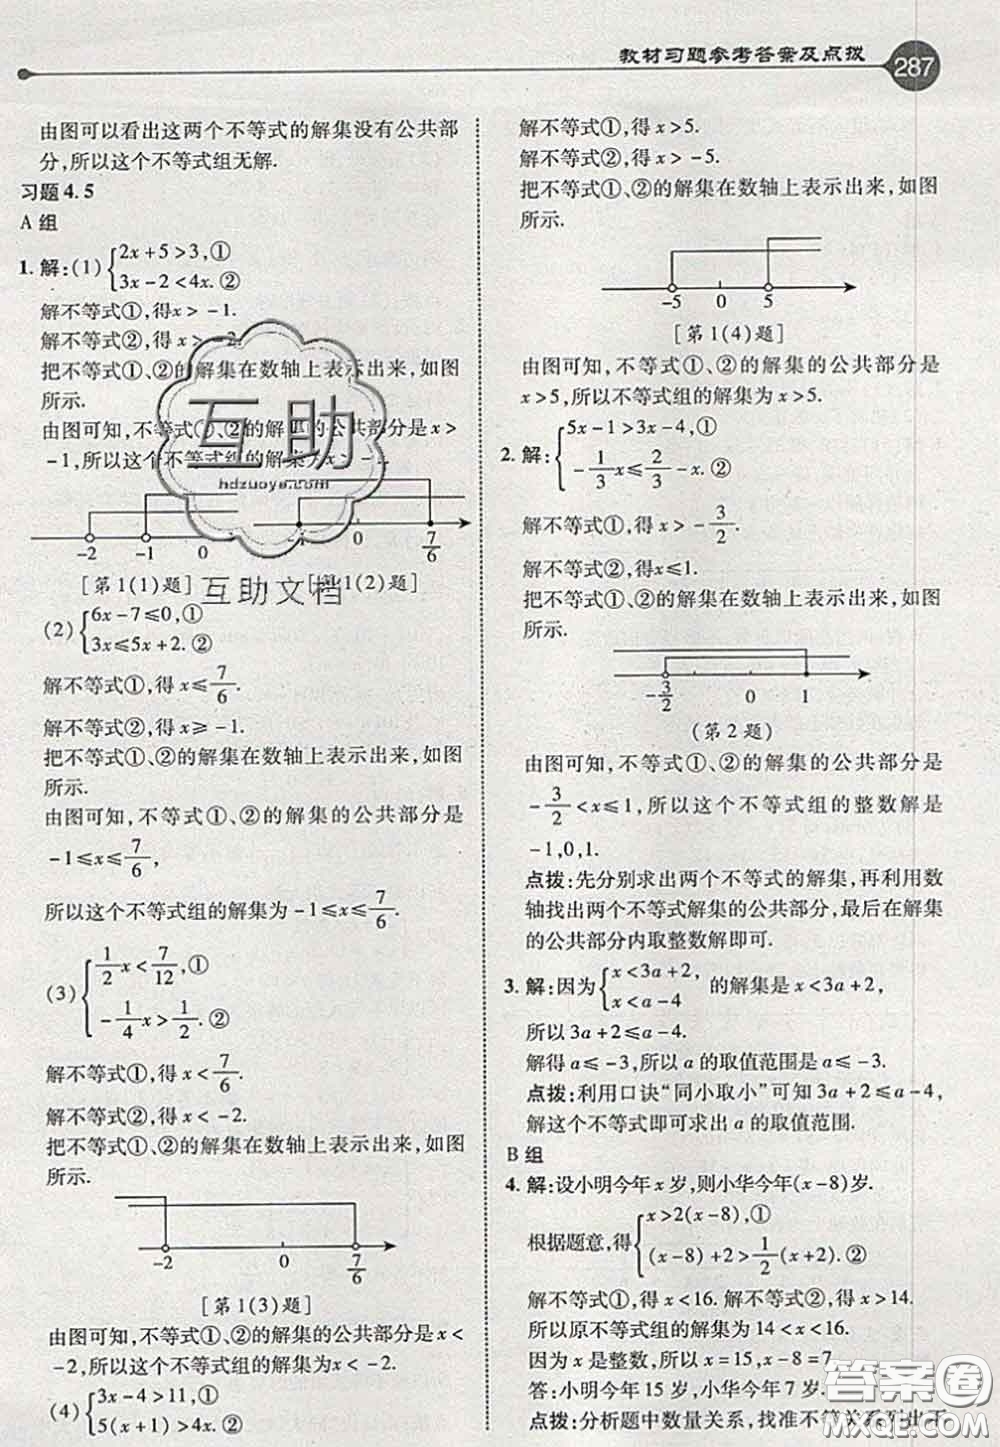 教材习题参考答案及点拨
287
由图可以看出这两个不等式的解集没有公共部
分,所以这个不等式组无解.
习题4.5
A组
1. 解:(1) {2x+5>3,①
3x-2<4x.②
解不等式①,得x>-1.
解不等式②,得x>-2.
把不等式①、②的解集在数轴上表示出来,如图
所示.
由图可知,不等式①、②的解集的公共部分是x>
-1,所以这个不等式组的解集为x>-
-2 -1 0
[第1(1)题]
-1 0 7/6
1(2)题]
互助
hdzuoye.com
互助文档
(2) {6x-7≤0,①
3x≤5x+2.②
解不等式①,得x≤7/6.
解不等式②,得x≥-1.
把不等式①、②的解集在数轴上表示出来,如图
所示.
由图可知,不等式①、②的解集的公共部分是
-1≤x≤7/6,
所以这个不等式组的解集为-1≤x≤7/6.
(3) {1/2x<7/12,①
-1/4x>1/2.②
解不等式①,得x<7/6.
解不等式②,得x<-2.
把不等式①、②的解集在数轴上表示出来,如图
所示.
-2 0 7/6
[第1(3)题]
由图可知,不等式①、②的解集的公共部分是x<
-2,所以这个不等式组的解集为x<-2.
(4) {3x-4>11,①
5(x+1)>4x.②
解不等式①,得x>5.
解不等式②,得x>-5.
把不等式①、②的解集在数轴上表示出来,如图
所示.
-5 0 5
[第1(4)题]
由图可知,不等式①、②的解集的公共部分是
x>5,所以不等式组的解集为x>5.
2. 解:{5x-1>3x-4,①
-1/3x≤2/3-x.②
解不等式①,得x>-3/2.
解不等式②,得x≤1.
把不等式①、②的解集在数轴上表示出来,如图
所示.
-3/2 0 1
(第2题)
由图可知,不等式①、②的解集的公共部分是
-3/2<x≤1,所以这个不等式组的整数解是
-1,0,1.
点拨:先分别求出两个不等式的解集,再利用数
轴找出两个不等式解集的公共部分,最后在解集
的公共部分内取整数解即可.
3. 解:因为{x<3a+2, 的解集是x<3a+2,
x<a-4
所以3a+2≤a-4.
解得a≤-3,所以a的取值范围是a≤-3.
点拨:利用口诀“同小取小”可知3a+2≤a-4,
解这个不等式即可求出a的取值范围.
B组
4. 解:设小明今年x岁,则小华今年(x-8)岁.
根据题意,得{x>2(x-8),①
(x-8)+2>1/2(x+2).②
解不等式①,得x<16.解不等式②,得x>14.
所以原不等式组的解集为14<x<16.
因为x是整数,所以x=15,x-8=7
答:小明今年15岁,小华今年7岁.
点拨:分析题中数量关系,找准不等关系列出不
答案圈
MXQE.COM